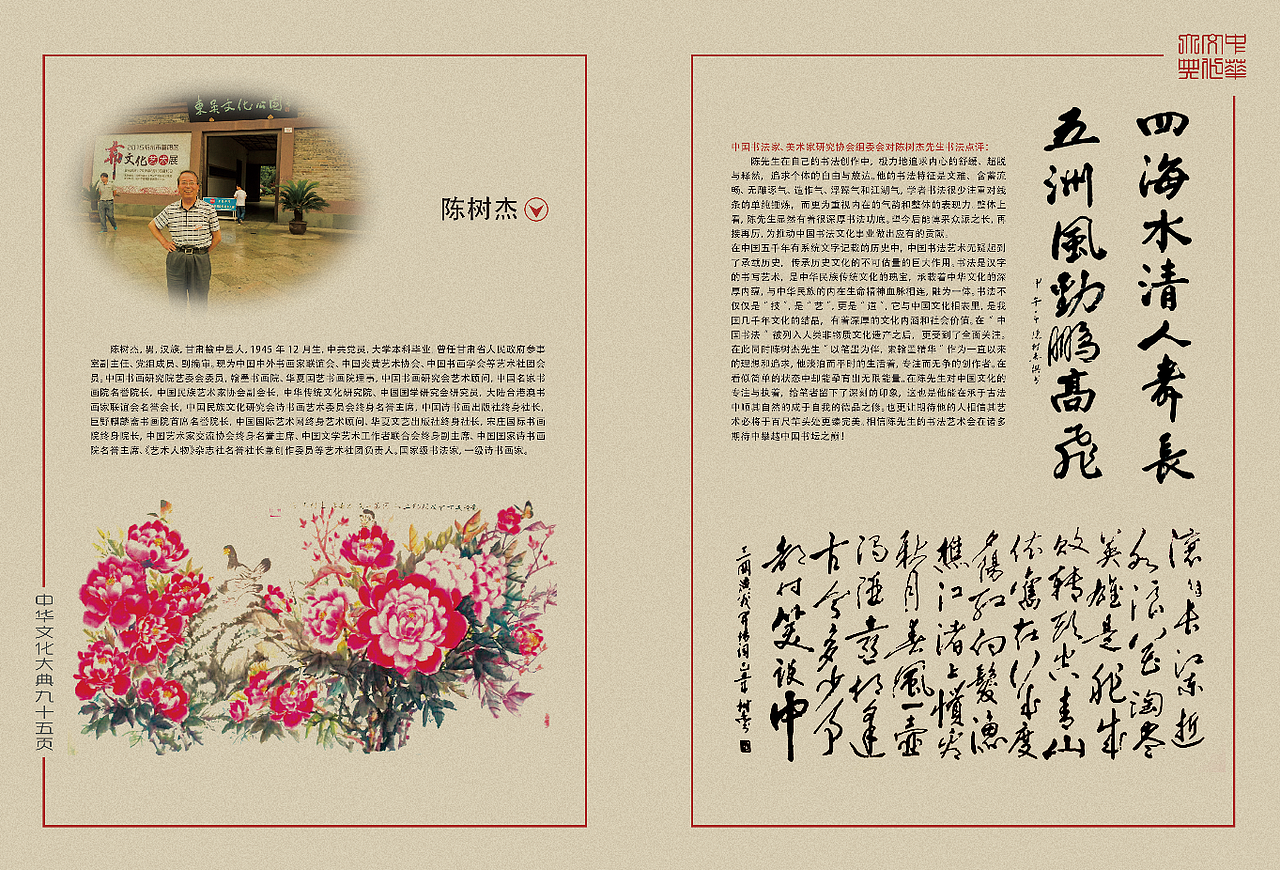 東吴文化公园
2015
布文化艺术展
陈树杰
陈树杰,男,汉族,甘肃榆中县人,1945年12月生,中共党员,大学本科毕业,曾任甘肃省人民政府参事
室副主任、党组成员、副编审。现为中国中外书画家联谊会、中国炎黄艺术协会、中国书画学会等艺术社团会
员,中国书画研究院艺委会委员,翰墨书画院、华夏国艺书画院理事,中国书画研究会艺术顾问,中国名家书
画院名誉院长,中国民族艺术家协会副会长,中华传统文化研究院、中国国学研究会研究员,大陆台港澳书
画家联谊会名誉会长,中国民族文化研究会诗书画艺术委员会终身名誉主席,中国诗书画出版社终身社长,
巨野麒麟斋书画院首席名誉院长,中国国际艺术网终身艺术顾问,华夏文艺出版社终身社长,宋庄国际书画
院终身院长,中国艺术家交流协会终身名誉主席、中国文学艺术工作者联合会终身副主席、中国国家诗书画
院名誉主席、《艺术人物》杂志社名誉社长兼创作委员等艺术社团负责人。国家级书法家,一级诗书画家。
中华文化大典九十五页
中華
文化
大典
四海水清人寿長
五洲風勁鵬髙飛
中国书法家、美术家研究协会组委会对陈树杰先生书法点评:
陈先生在自己的书法创作中,极力地追求内心的舒缓、超脱
与释然,追求个体的自由与旷达。他的书法特征是文雅、含蓄流
畅、无雕琢气、造作气、浮躁气和江湖气,学者书法很少注重对线
条的单纯锤炼,而更为重视内在的气韵和整体的表现力。整体上
看,陈先生显然有着很深厚书法功底。望今后能博采众派之长,再
接再厉,为推动中国书法文化事业做出应有的贡献。
在中国五千年有系统文字记载的历史中,中国书法艺术无疑起到
了承载历史,传承历史文化的不可估量的巨大作用。书法是汉字
的书写艺术,是中华民族传统文化的瑰宝,承载着中华文化的深
厚内蕴,与中华民族的内在生命精神血脉相连,融为一体。书法不
仅仅是“技”,是“艺”,更是“道”,它与中国文化相表里,是我
国几千年文化的结晶,有着深厚的文化内涵和社会价值。在“中
国书法”被列入人类非物质文化遗产之后,更受到了全面关注。
在此同时陈树杰先生“以笔墨为伴,索翰墨精华”作为一直以来
的理想和追求,他淡泊而不俗的生活着,专注而无争的创作者。在
看似简单的状态中却能孕育出无限能量。在陈先生对中国文化的
专注与执着,给笔者留下了深刻的印象,这也是他能在承于古法
中顺其自然的成于自我的德品之修。也更让期待他的人相信其艺
术必将于百尺竿头处更臻完美。相信陈先生的书法艺术会在诸多
期待中攀越中国书坛之巅!
滚滚长江东逝
水浪花淘尽
英雄是非成
败转头空青山
依旧在几度
夕陽红白髮漁
樵江渚上慣看
秋月春風一壶
濁酒喜相逢
古今多少事
都付笑談中